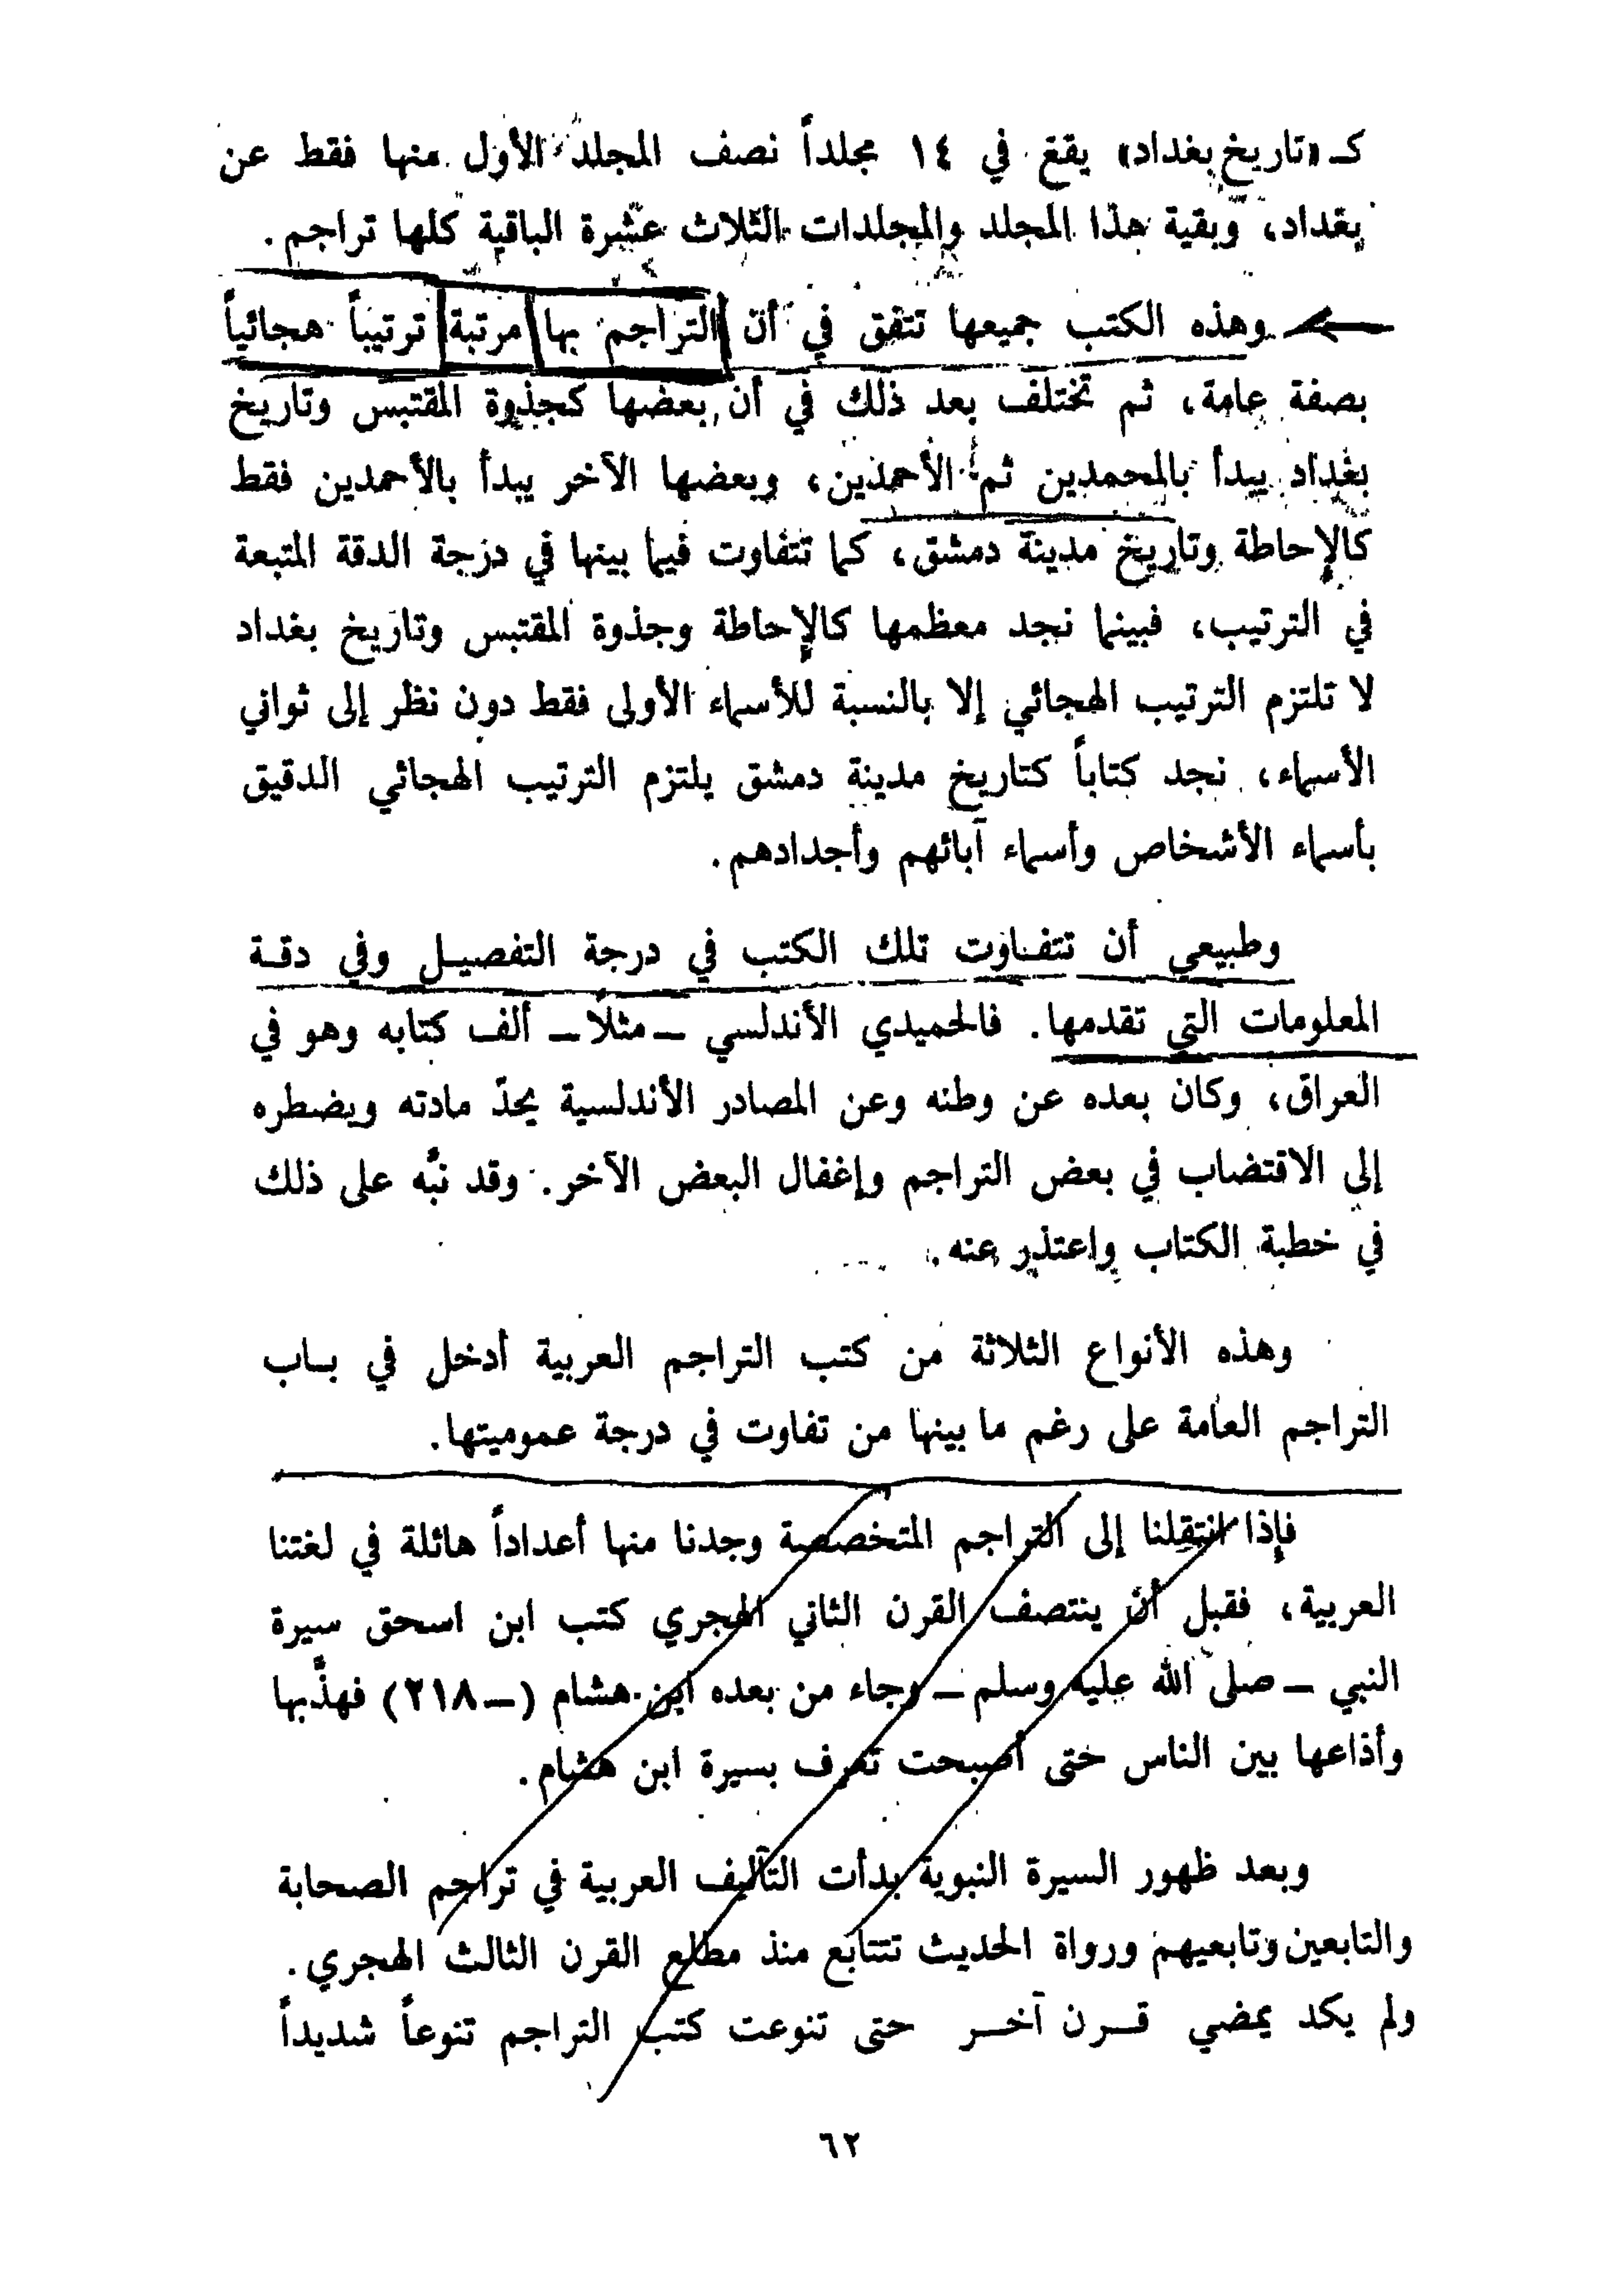 كـ «تاريخ بغداد» يقع في ١٤ مجلداً نصف المجلد الأول منها فقط عن
بغداد، وبقية هذا المجلد والمجلدات الثلاث عشرة الباقية كلها تراجم.
وهذه الكتب جميعها تتفق في أن التراجم بها مرتبة ترتيباً هجائياً
بصفة عامة، ثم تختلف بعد ذلك في أن بعضها كجذوة المقتبس وتاريخ
بغداد يبدأ بالمحمدين ثم الأحمدين، وبعضها الآخر يبدأ بالأحمدين فقط
كالإحاطة وتاريخ مدينة دمشق، كما تتفاوت فيما بينها في درجة الدقة المتبعة
في الترتيب، فبينما نجد معظمها كالإحاطة وجذوة المقتبس وتاريخ بغداد
لا تلتزم الترتيب الهجائي إلا بالنسبة للأسماء الأولى فقط دون نظر إلى ثواني
الأسماء، نجد كتاباً كتاريخ مدينة دمشق يلتزم الترتيب الهجائي الدقيق
بأسماء الأشخاص وأسماء آبائهم وأجدادهم.
وطبيعي أن تتفاوت تلك الكتب في درجة التفصيل وفي دقة
المعلومات التي تقدمها. فالحميدي الأندلسي ــ مثلًا ــ ألف كتابه وهو في
العراق، وكان بعده عن وطنه وعن المصادر الأندلسية يحدّ مادته ويضطره
إلى الاقتضاب في بعض التراجم وإغفال البعض الآخر. وقد نبَّه على ذلك
في خطبة الكتاب واعتذر عنه.
وهذه الأنواع الثلاثة من كتب التراجم العربية أدخل في باب
التراجم العامة على رغم ما بينها من تفاوت في درجة عموميتها.
فإذا انتقلنا إلى التراجم المتخصصة وجدنا منها أعداداً هائلة في لغتنا
العربية، فقبل أن ينتصف القرن الثاني الهجري كتب ابن اسحق سيرة
النبي ــ صلى الله عليه وسلم ــ وجاء من بعده ابن هشام (ــ ٢١٨) فهذَّبها
وأذاعها بين الناس حتى أصبحت تعرف بسيرة ابن هشام.
وبعد ظهور السيرة النبوية بدأت التآليف العربية في تراجم الصحابة
والتابعين وتابعيهم ورواة الحديث تتتابع منذ مطلع القرن الثالث الهجري.
ولم يكد يمضي قرن آخر حتى تنوعت كتب التراجم تنوعاً شديداً
٦٢